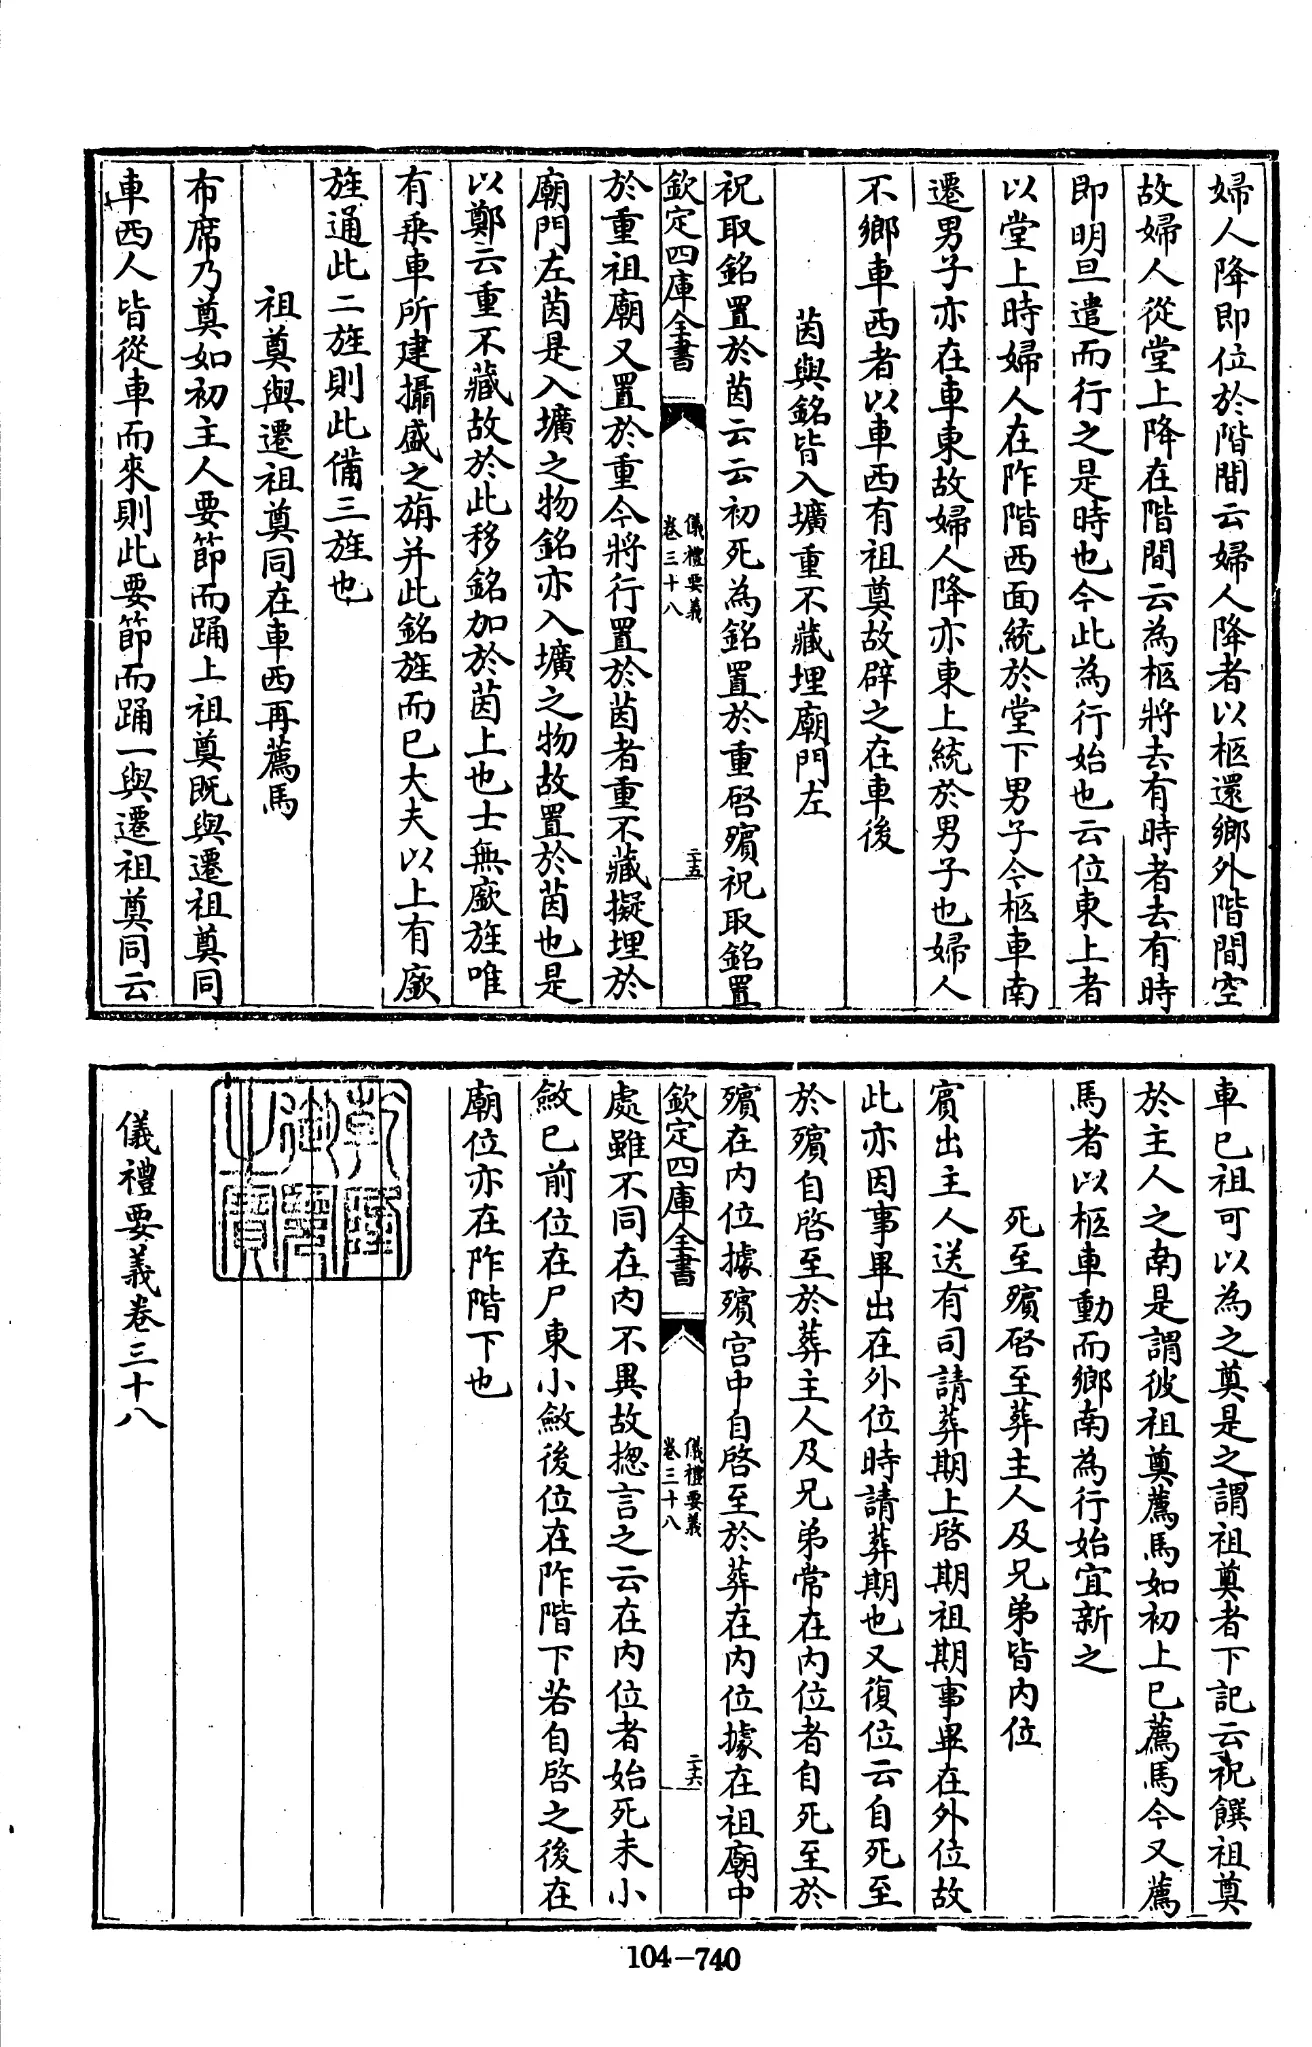 婦人降即位於階間云婦人降者以柩還鄉外階間空
故婦人從堂上降在階間云為柩將去有時者去有時
即明旦遣而行之是時也今此為行始也云位東上者
以堂上時婦人在阼階西面統於堂下男子今柩車南
遷男子亦在車東故婦人降亦東上統於男子也婦人
不鄉車西者以車西有祖奠故辟之在車後
茵與銘皆入壙重不藏埋廟門左
祝取銘置於茵云云初死為銘置於重啓殯祝取銘置
欽定四庫全書
儀禮要義
卷三十八
二十五
於重祖廟又置於重今將行置於茵者重不藏擬埋於
廟門左茵是入壙之物銘亦入壙之物故置於茵也是
以鄭云重不藏故於此移銘加於茵上也士無廞旌唯
有乗車所建攝盛之旃并此銘旌而已大夫以上有廞
旌通此二旌則此備三旌也
祖奠與遷祖奠同在車西再薦馬
布席乃奠如初主人要節而踊上祖奠既與遷祖奠同
車西人皆從車而來則此要節而踊一與遷祖奠同云
車已祖可以為之奠是之謂祖奠者下記云祝饌祖奠
於主人之南是謂彼祖奠薦馬如初上已薦馬今又薦
馬者以柩車動而鄉南為行始宜新之
死至殯啓至葬主人及兄弟皆內位
賓出主人送有司請葬期上啓期祖期事畢在外位故
此亦因事畢出在外位時請葬期也又復位云自死至
於殯自啓至於葬主人及兄弟常在內位者自死至於
殯在內位據殯宮中自啓至於葬在內位據在祖廟中
欽定四庫全書
儀禮要義
卷三十八
二十六
處雖不同在內不異故摠言之云在內位者始死未小
斂已前位在尸東小斂後位在阼階下若自啓之後在
廟位亦在阼階下也
乾隆御覽之寶
儀禮要義卷三十八
104-740